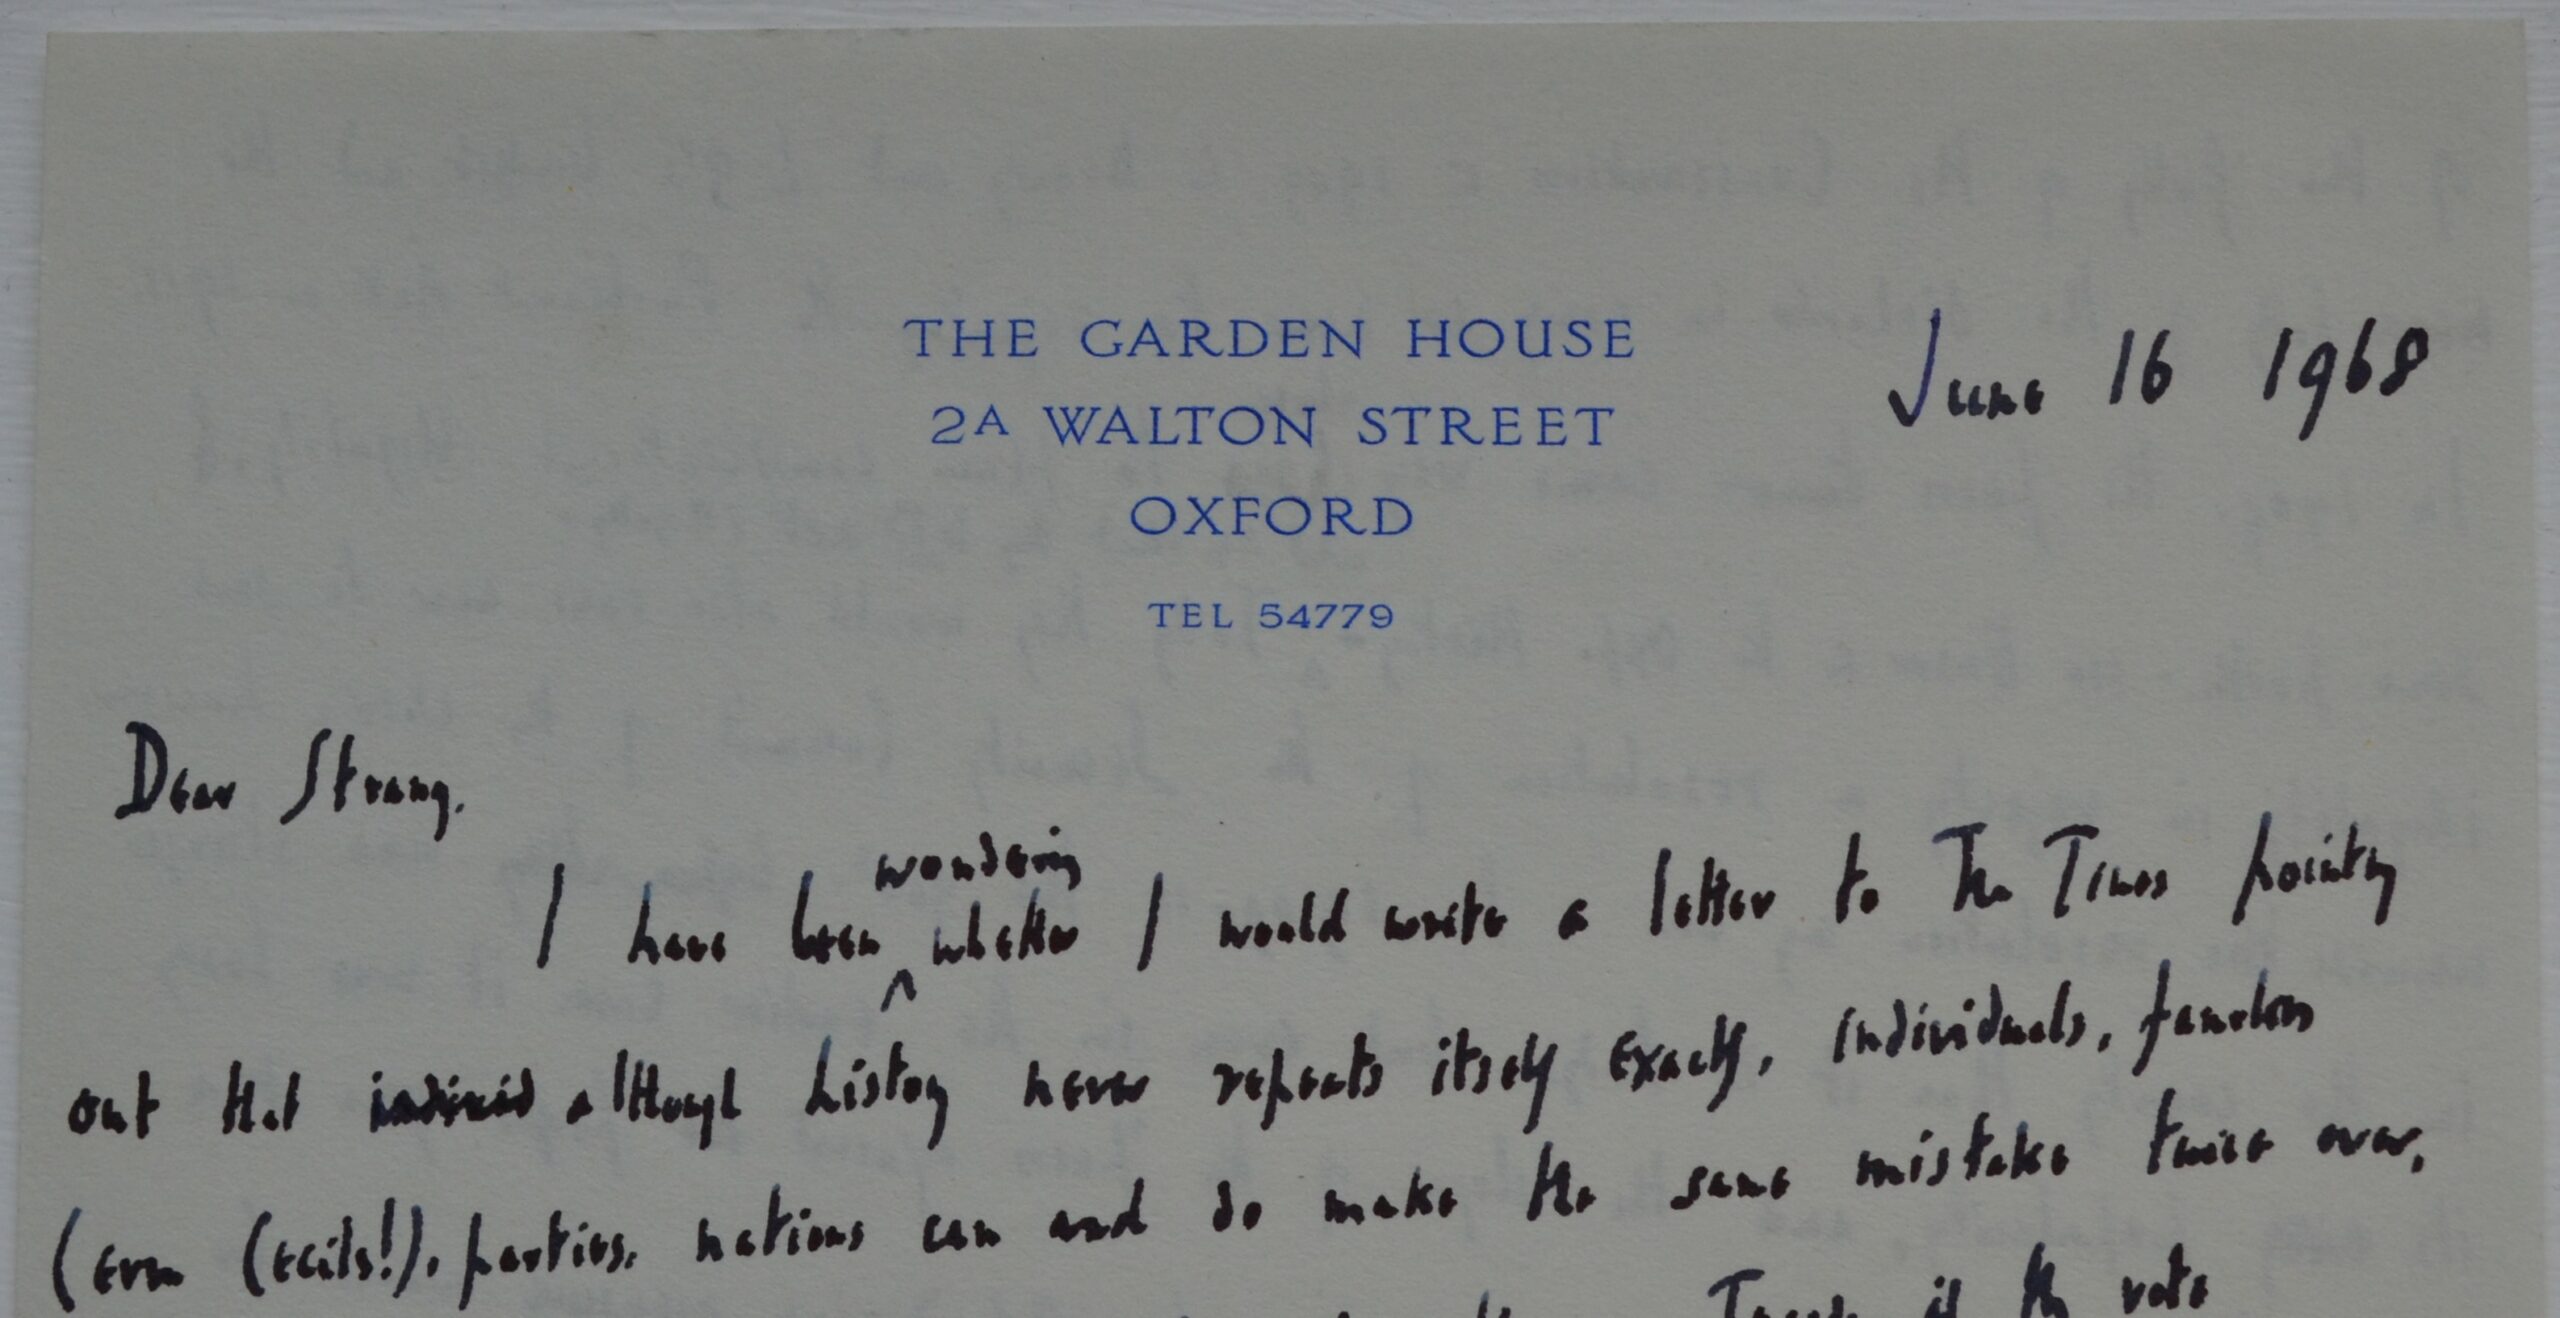 THE GARDEN HOUSE
2A WALTON STREET
OXFORD
TEL 54779
June 16 1968
Dear Strang.
wondering
I have been ^ whether I would write a letter to The Times pointing
out that individ although history never repeats itself exactly, individuals, families
(even Cecils!), parties, nations can and do make the same mistake twice over,
if the vote